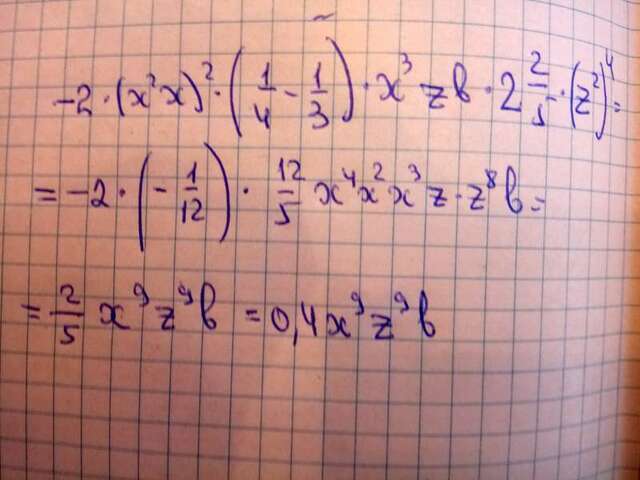 -2·(x²x)²·(1/4 - 1/3)·x³zb·2 2/5·(z²)⁴=
= -2·(-1/12)·12/5 x⁴x²x³z·z⁸b=
= 2/5 x⁹z⁹b = 0,4x⁹z⁹b